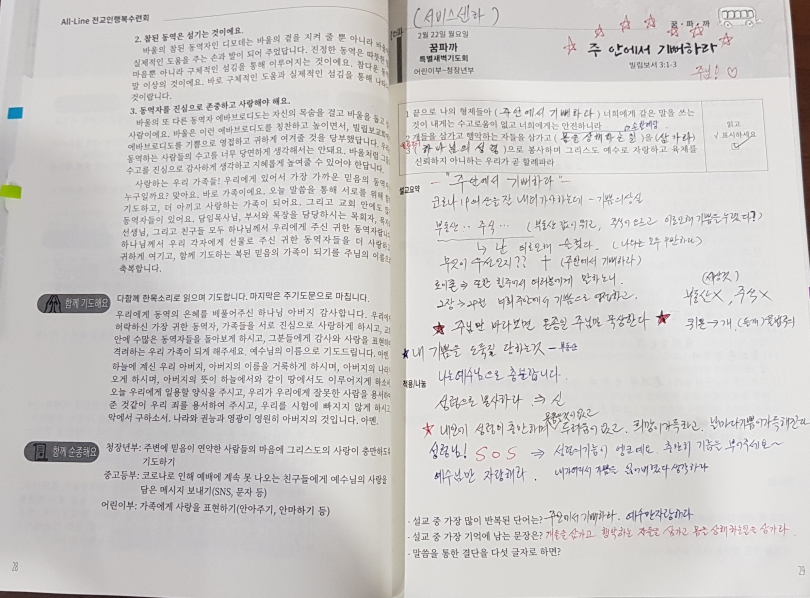 All-Line 전교인행복수련회
2. 참된 동역은 섬기는 것이에요.
바울의 참된 동역자인 디모데는 바울의 곁을 지켜 줄 뿐 아니라 바울에
실제적인 도움을 주는 손과 발이 되어 주었답니다. 진정한 동역은 따뜻한
마음뿐 아니라 구체적인 섬김을 통해 이루어지는 것이에요. 참다운 동역
말 이상의 것이에요. 바로 구체적인 도움과 실제적인 섬김을 통해 나타나는
것이랍니다.
3. 동역자를 진심으로 존중하고 사랑해야 해요.
바울의 또 다른 동역자 에바브로디도는 자신의 목숨을 걸고 바울을 돕고
사람이에요. 바울은 이런 에바브로디도를 칭찬하고 높이면서, 빌립보교회에
에바브로디도를 기쁨으로 영접하고 귀하게 여겨줄 것을 당부했답니다. 우리
동역하는 사람들의 수고를 너무 당연하게 생각해서는 안돼요. 바울처럼 그들
수고를 진심으로 감사하게 생각하고 지혜롭게 높여줄 수 있어야 한답니다.
사랑하는 우리 가족들! 우리에게 있어서 가장 가까운 믿음의 동역자
누구일까요? 맞아요. 바로 가족이에요. 오늘 말씀을 통해 서로를 위해
기도하고, 더 아끼고 사랑하는 가족이 되어요. 그리고 교회 안에도
동역자들이 있어요. 담임목사님, 부서와 목장을 담당하시는 목회자, 목자
선생님, 그리고 친구들 모두 하나님께서 우리에게 주신 귀한 동역자랍니다
하나님께서 우리 각자에게 선물로 주신 귀한 동역자들을 더 사랑하고
귀하게 여기고, 함께 기도하는 복된 믿음의 가족이 되기를 주님의 이름으로
축복합니다.
함께 기도해요 다함께 한목소리로 읽으며 기도합니다. 마지막은 주기도문으로 마칩니다.
우리에게 동역의 은혜를 베풀어주신 하나님 아버지 감사합니다. 우리에게
허락하신 가장 귀한 동역자, 가족들을 서로 진심으로 사랑하게 하시고, 교회
안에 수많은 동역자들을 돌아보게 하시고, 그분들에게 감사와 사랑을 표현하며
격려하는 우리 가족이 되게 해주세요. 예수님의 이름으로 기도드립니다. 아멘.
하늘에 계신 우리 아버지, 아버지의 이름을 거룩하게 하시며, 아버지의 나라가
오게 하시며, 아버지의 뜻이 하늘에서와 같이 땅에서도 이루어지게 하소서
오늘 우리에게 일용할 양식을 주시고, 우리가 우리에게 잘못한 사람을 용서하여
준 것같이 우리 죄를 용서하여 주시고, 우리를 시험에 빠지지 않게 하시고
악에서 구하소서. 나라와 권능과 영광이 영원히 아버지의 것입니다. 아멘.
함께 순종해요 청장년부: 주변에 믿음이 연약한 사람들의 마음에 그리스도의 사랑이 충만하도록
기도하기
중고등부: 코로나로 인해 예배에 계속 못 나오는 친구들에게 예수님의 사랑을
담은 메시지 보내기(SNS, 문자 등)
어린이부: 가족에게 사랑을 표현하기(안아주기, 안마하기 등)
28
(서비스센타)
꿈·파·까
2월 22일 월요일
꿈파까
특별새벽기도회
어린이부~청장년부
주 안에서 기뻐하라
빌립보서 3:1-3
주님! ♡
1 끝으로 나의 형제들아 (주안에서 기뻐하라) 너희에게 같은 말을 쓰는
것이 내게는 수고로움이 없고 너희에게는 안전하니라
2 개들을 삼가고 행악하는 자들을 삼가고 (몸을 상해하는 일)을 (삼가라)
하나님의 성령)으로 봉사하며 그리스도 예수로 자랑하고 육체를
신뢰하지 아니하는 우리가 곧 할례파라
읽고
√ 표시하세요
설교요약
- "주안에서 기뻐하라" -
코로나 19 어려운 잘 내려가야하는데 - 기쁨의 상실
부동산.. 주식...
무엇이 우선인지?? + (주안에서 기뻐하라)
(세상것)
부동산X, 주식X
★ 주님만 바라보면 온종일 주님만 묵상한다 ★
★ 내 기쁨을 도둑질 당하는것 - 부동산
나는 예수님으로 충분합니다.
적용/나눔
성령으로 봉사하라 ⇒ 신
성령님! SOS ⇒
예수님만 자랑해라.
- 설교 중 가장 많이 반복된 단어는? 주안에서 기뻐하라. 예수만 자랑하라
- 설교 중 가장 기억에 남는 문장은? 개들을 삼가고 행악하는 자들을 삼가고 몸을 상해하는일을 삼가라.
- 말씀을 통한 결단을 다섯 글자로 하면?
29